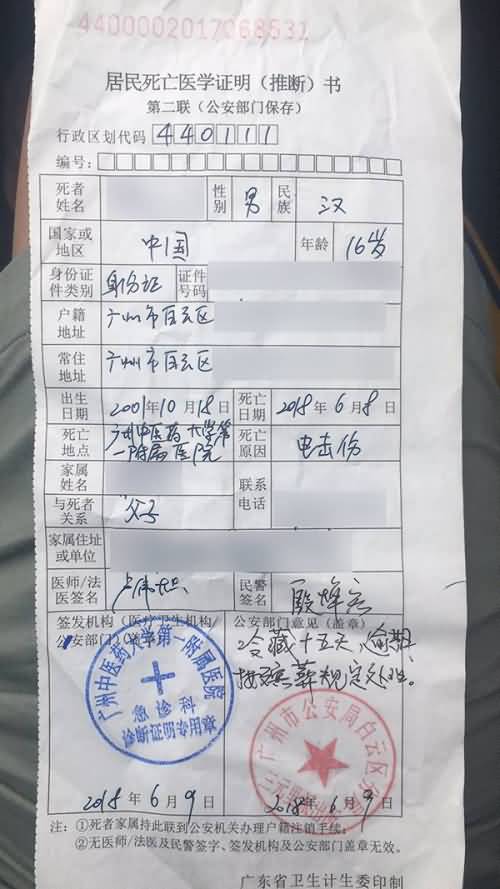 4400002017068531
居民死亡医学证明（推断）书
第二联（公安部门保存）
行政区划代码 440111
编号：
死者姓名 性别 男 民族 汉
国家或地区 中国 年龄 16岁
身份证件类别 身份证 证件号码
户籍地址 广州市白云区
常住地址 广州市白云区
出生日期 2001年10月18日 死亡日期 2018年6月8日
死亡地点 广州中医药大学第一附属医院 死亡原因 电击伤
家属姓名 联系电话
与死者关系 父子
家属住址或单位
医师/法医签名 民警签名
签发机构（医疗卫生机构/公安部门）（盖章） 公安部门意见（盖章）
冷藏十五天，逾期
按殡葬规定处理。
广州中医药大学第一附属医院
急诊科
广州市公安局白云区分局
2018年6月9日 2018年6月9日
注：①死者家属持此联到公安机关办理户籍注销手续；
②无医师/法医及民警签字、签发机构及公安部门盖章无效。
广东省卫生计生委印制